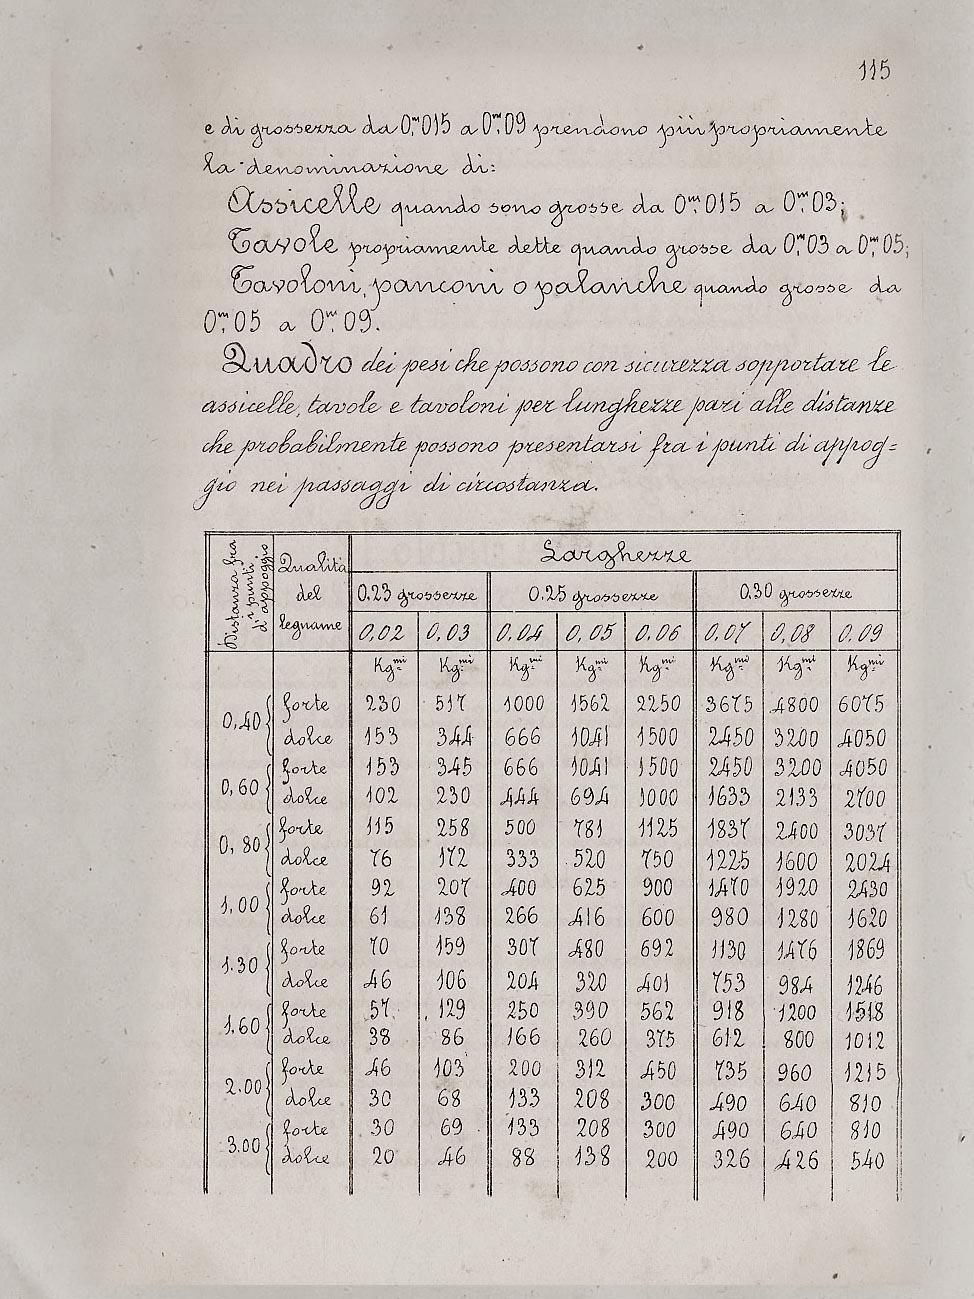 115
e di grossezza da 0,m015 a 0,m09 prendono più propriamente
la denominazione di:
Assicelle quando sono grosse da 0,m015 a 0,m03;
Tavole propriamente dette quando grosse da 0,m03 a 0,m05;
Tavoloni, panconi o palanche quando grosse da
0,m05 a 0,m09.
Quadro dei pesi che possono con sicurezza sopportare le
assicelle, tavole e tavoloni per lunghezze pari alle distanze
che probabilmente possono presentarsi fra i punti di appog=
gio nei passaggi di circostanza.
Distanza fra i punti d'appoggio
Qualità del legname
Larghezze
0,23 grossezze 0,25 grossezze 0,30 grossezze
0,02 0,03 0,04 0,05 0,06 0,07 0,08 0,09
Kg.mi Kg.mi Kg.mi Kg.mi Kg.mi Kg.mi Kg.mi Kg.mi
0,40 forte 230 517 1000 1562 2250 3675 4800 6075
dolce 153 344 666 1041 1500 2450 3200 4050
0,60 forte 153 345 666 1041 1500 2450 3200 4050
dolce 102 230 444 694 1000 1633 2133 2700
0,80 forte 115 258 500 781 1125 1837 2400 3037
dolce 76 172 333 520 750 1225 1600 2024
1,00 forte 92 207 400 625 900 1470 1920 2430
dolce 61 138 266 416 600 980 1280 1620
1.30 forte 70 159 307 480 692 1130 1476 1869
dolce 46 106 204 320 401 753 984 1246
1.60 forte 57 129 250 390 562 918 1200 1518
dolce 38 86 166 260 375 612 800 1012
2.00 forte 46 103 200 312 450 735 960 1215
dolce 30 68 133 208 300 490 640 810
3.00 forte 30 69 133 208 300 490 640 810
dolce 20 46 88 138 200 326 426 540